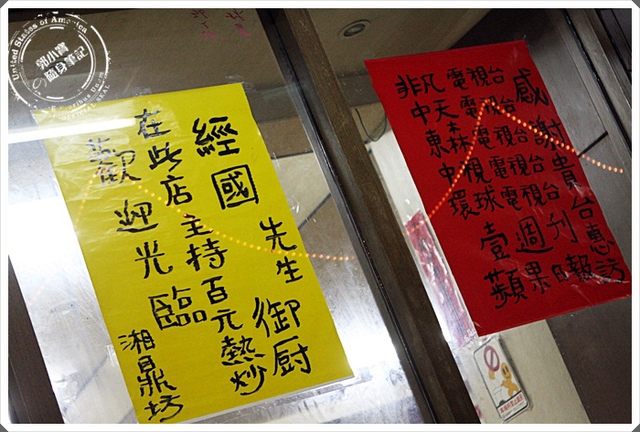 經國
先生
御厨
在此店主持百元熱炒
歡迎光臨
湘鼎坊
感謝貴台惠訪
非凡電視台
中天電視台
東森電視台
中視電視台
環球電視台
壹週刊
蘋果日報
United States of America
郭小寶
の隨身筆記